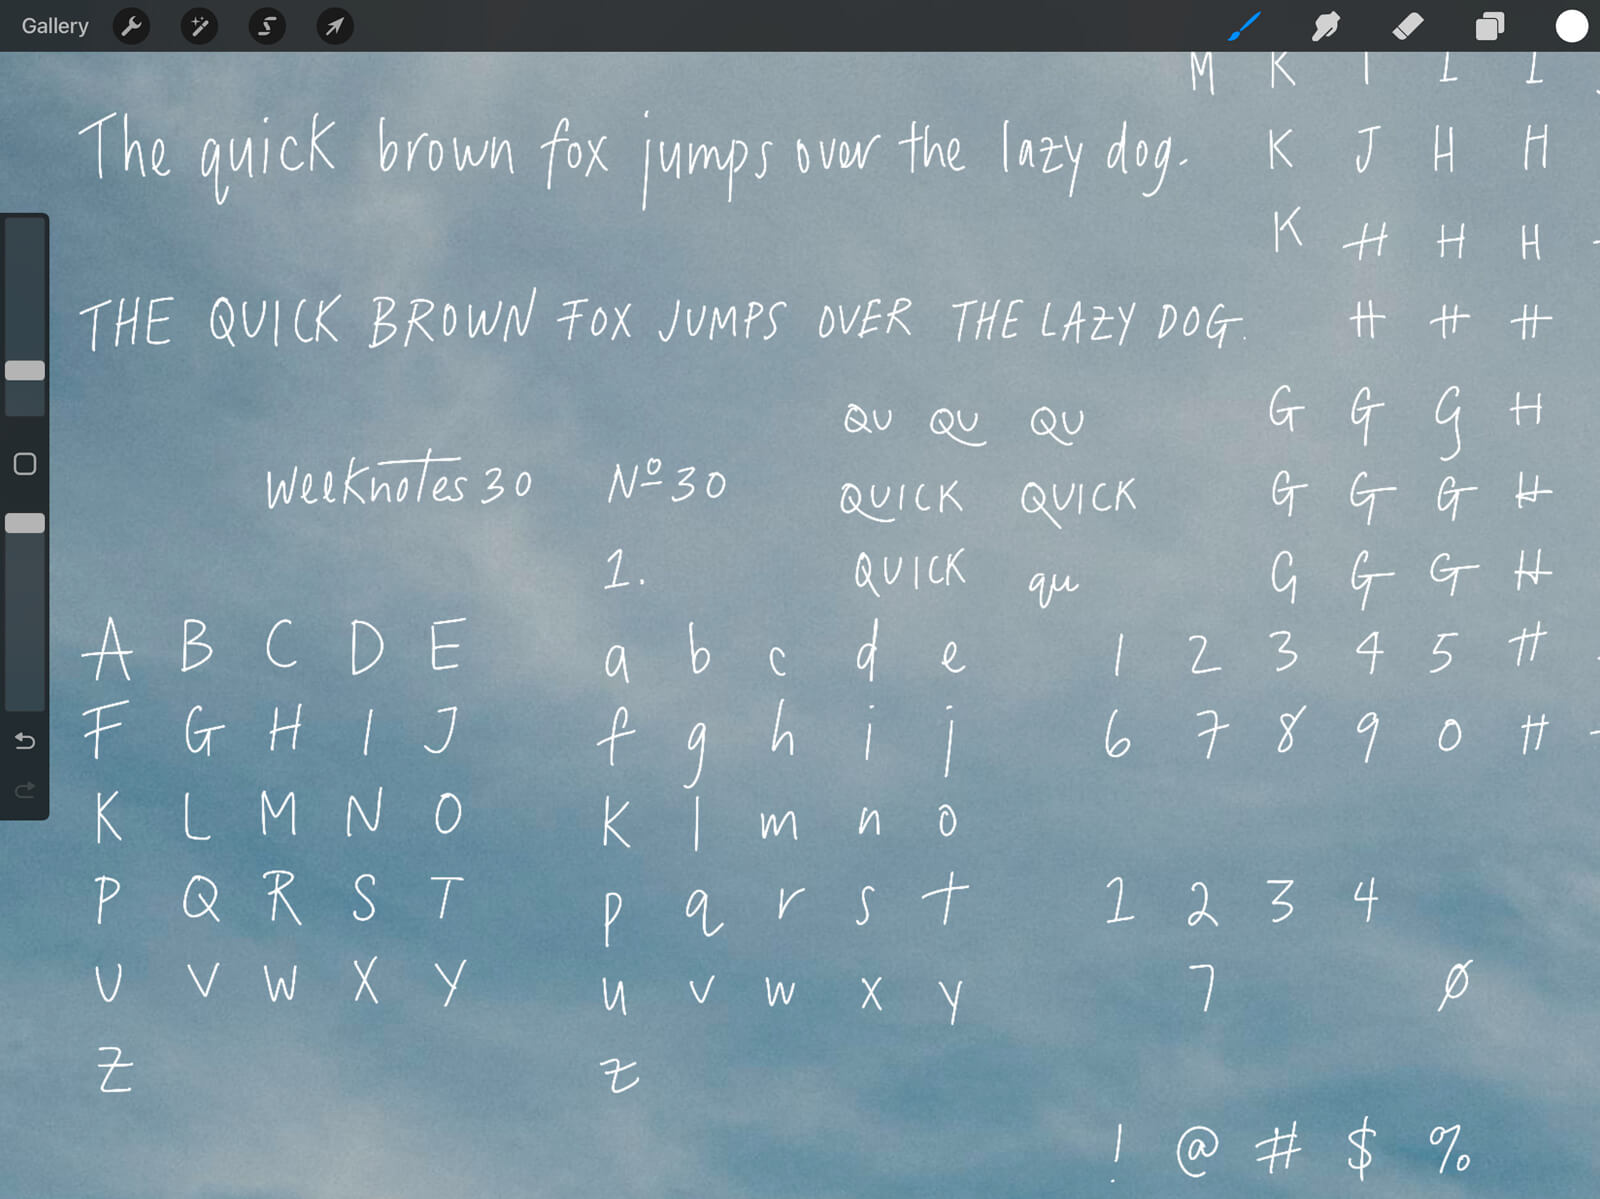 Gallery
M K I I I
The quick brown fox jumps over the lazy dog.
K J H H
K H H H
THE QUICK BROWN FOX JUMPS OVER THE LAZY DOG.
H H H
G G G H
QU QU QU
Weeknotes 30 Nº 30
QUICK QUICK
G G G H
1.
QUICK qu
G G G H
A B C D E
a b c d e
1 2 3 4 5 H
F G H I J
f g h i j
6 7 8 9 0 H
K L M N O
k l m n o
P Q R S T
p q r s t
1 2 3 4
U V W X Y
u v w x y
7 0
Z
z
! @ # $ %